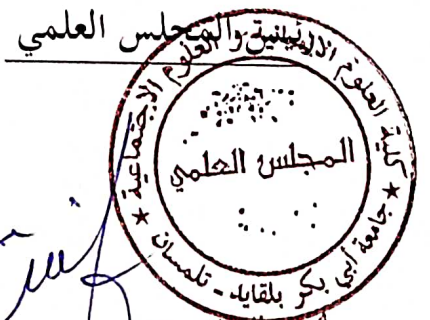 والمجلس العلمي
كلية العلوم الإنسانية والعلوم الاجتماعية
المجلس العلمي
★ جامعة أبي بكر بلقايد - تلمسان ★